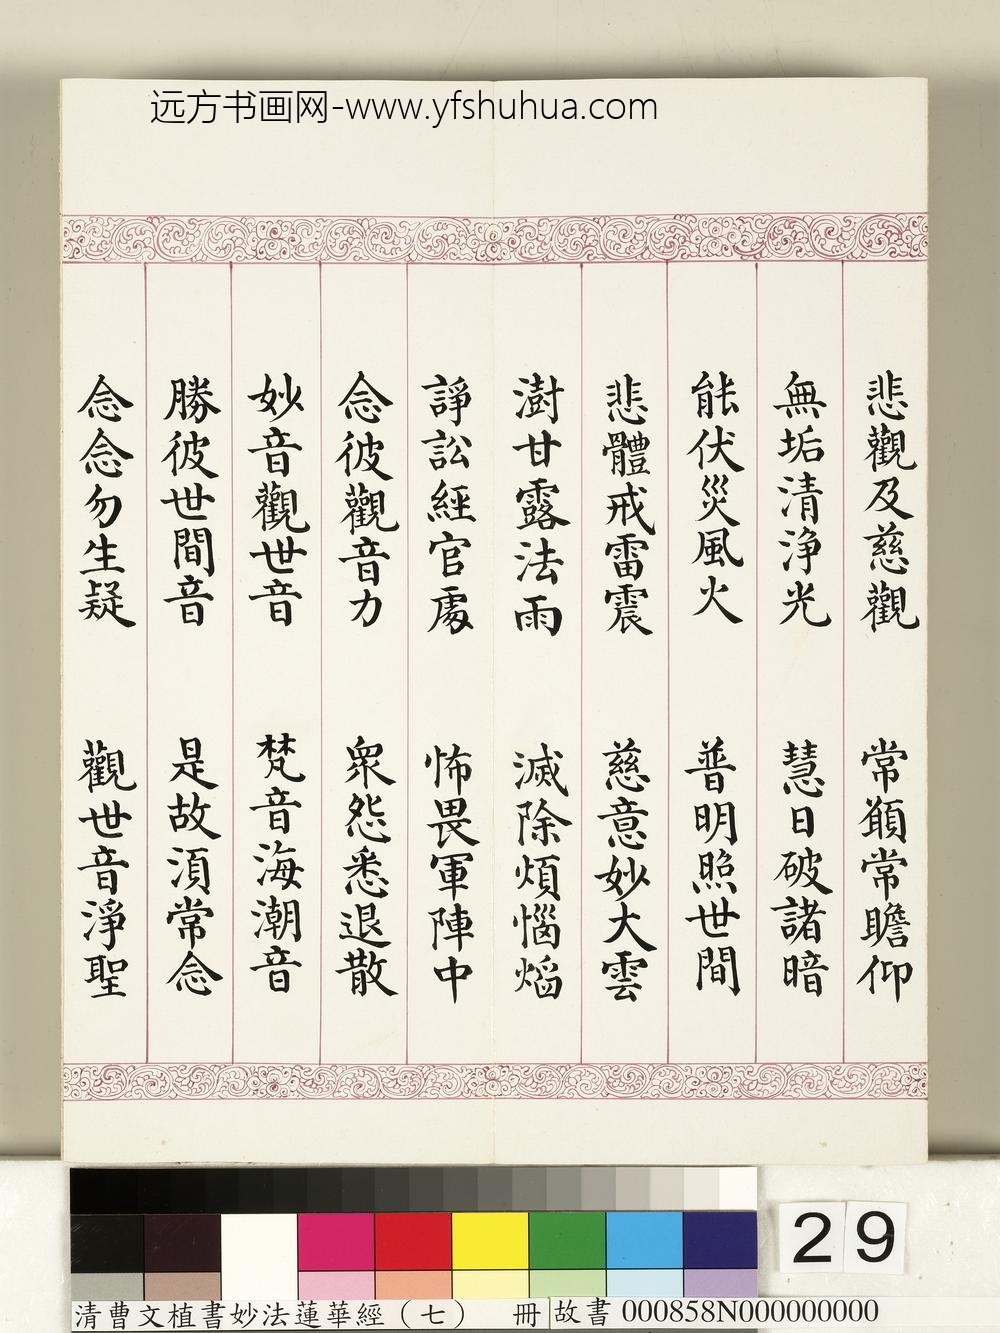 远方书画网-www.yfshuhua.com
悲觀及慈觀　常願常瞻仰
無垢清淨光　慧日破諸暗
能伏災風火　普明照世間
悲體戒雷震　慈意妙大雲
澍甘露法雨　滅除煩惱焰
諍訟經官處　怖畏軍陣中
念彼觀音力　眾怨悉退散
妙音觀世音　梵音海潮音
勝彼世間音　是故須常念
念念勿生疑　觀世音淨聖
29
清曹文植書妙法蓮華經（七）　冊　故書 000858N000000000